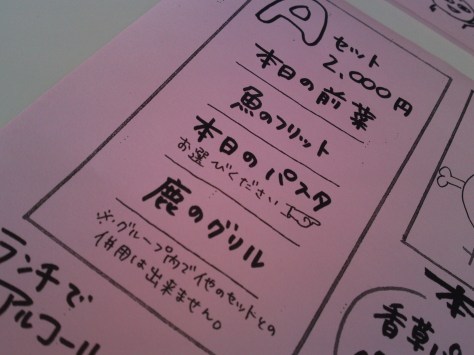 A セット
2,000円
本日の前菜
魚のフリット
本日のパスタ
お選びください
鹿のグリル
※グループ内で他のセットとの
併用は出来ません。
ランチで
アルコール
本
香草